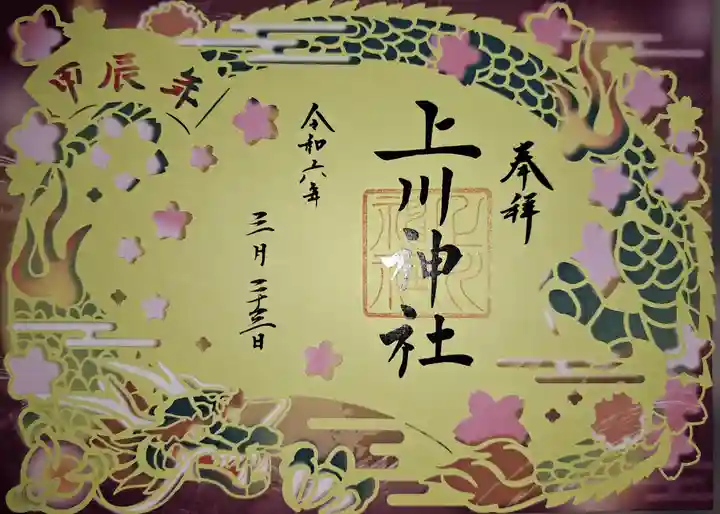 奉拝
上川神社
令和六年
三月二十三日
甲辰年